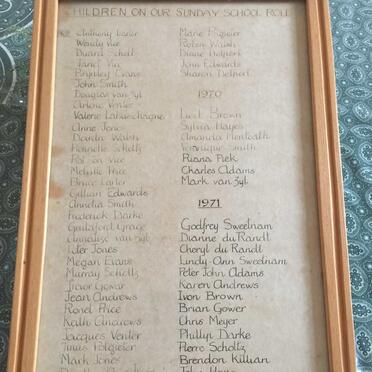 CHILDREN ON OUR SUNDAY SCHOOL ROLL
Anthony Larter
Wendy Vice
Duard Scheltz
Janet Vice
Kingsley Evans
John Smith
Douglas van Zyl
Arlene Venter
Valerie Labuschagne
Anne Jones
Dawn Walsh
Hannelie Scheltz
Melville Price
Bruce Larter
Gillian Edwards
Annelia Smith
Frederick Darke
Guildford Grage
Annalise van Zyl
Peter Jones
Megan Evans
Murray Scholtz
Trevor Gower
Jean Andrews
Ronel Price
Kath Andrews
Jacques Venter
Tinus Potgieter
Mark Jones
Marie Potgieter
Robin Walsh
Diane Delport
John Edwards
Sharon Delport
1970
Lucil Brown
Sylvia Hayes
Amanda Menteath
Veronique Smith
Riana Piek
Charles Adams
Mark van Zyl
1971
Godfrey Sweetnam
Dianne du Randt
Cheryl du Randt
Lindy-Ann Sweetnam
Peter John Adams
Karen Andrews
Ivon Brown
Brian Gower
Chris Meyer
Phillip Darke
Pierre Scholtz
Brendon Killian